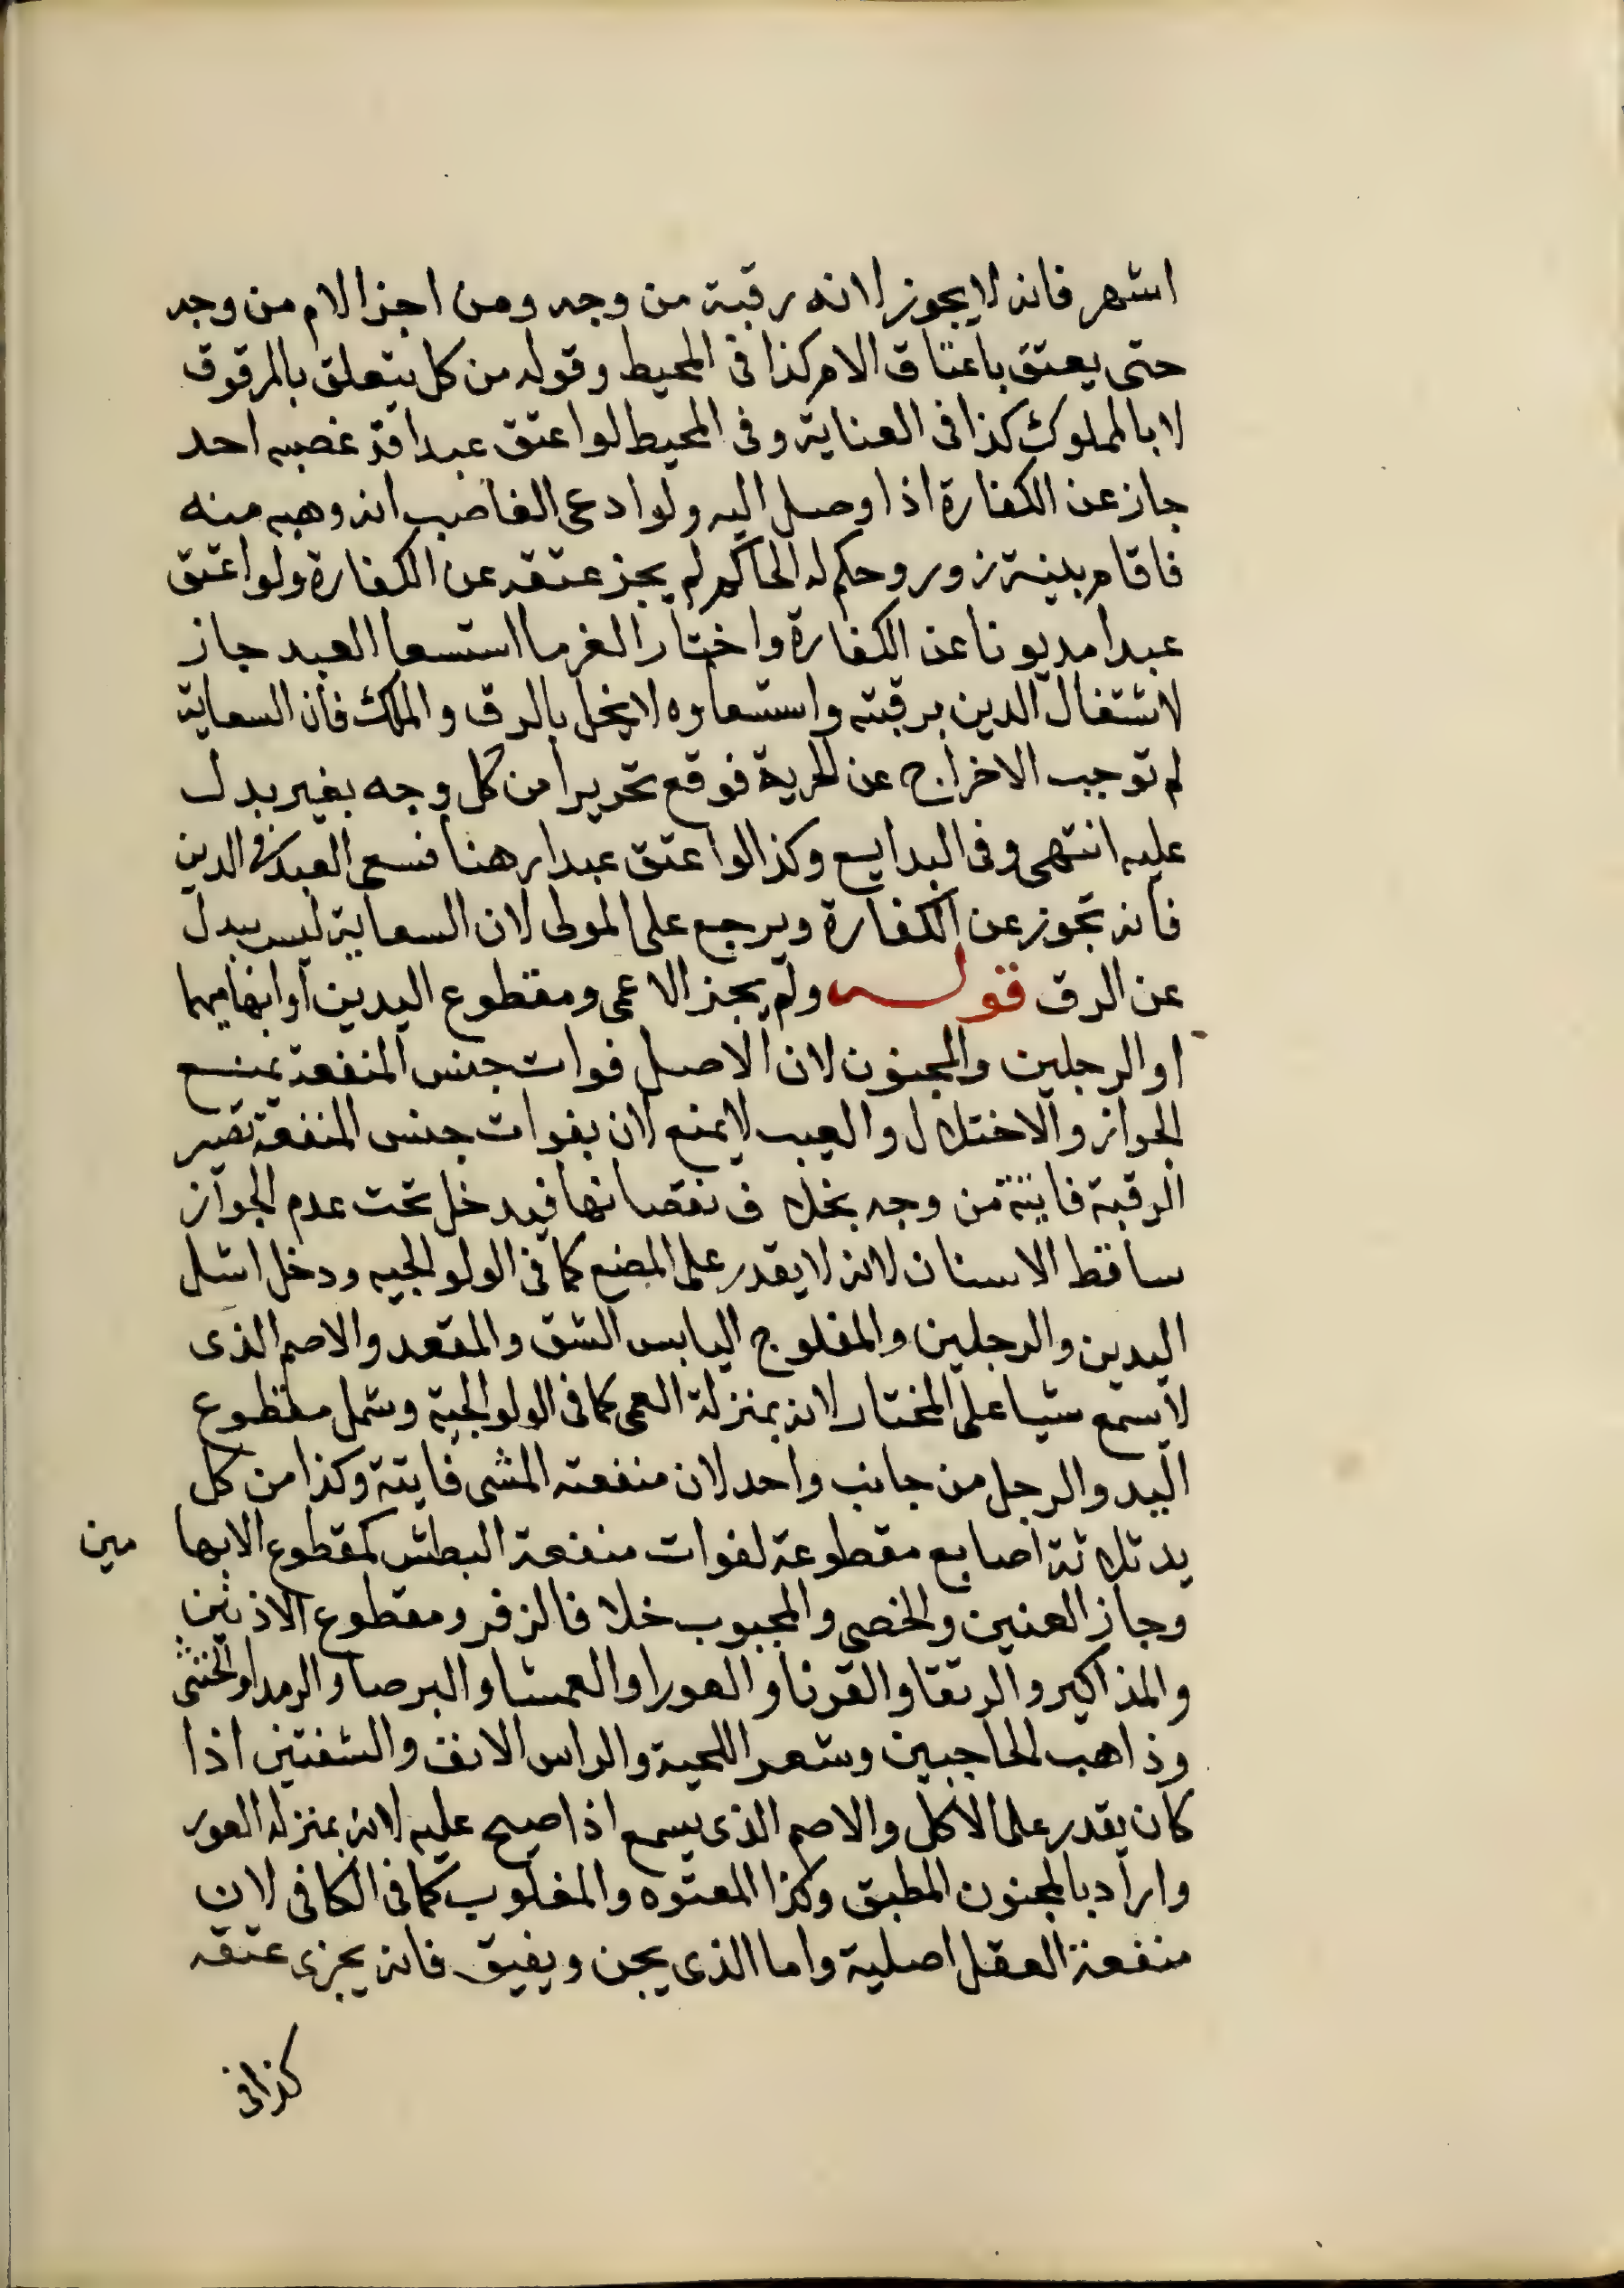 اشهر فانه لا يجوز لانه رقبة من وجه ومن اجزا الام من وجه
حتى يعتق باعتاق الام كذا فى المحيط وقوله من كل يتعلق بالمرقوق
لا بالمملوك كذا فى العناية وفى المحيط لو اعتق عبدا قد غصبه احد
جاز عن الكفارة اذا وصل اليه ولو ادعى الغاصب انه وهبه منه
فاقام بينة زور وحكم له الحاكم لم يجز عتقه عن الكفارة ولو اعتق
عبدا مديونا عن الكفارة واختار الغرما استسعا العبد جاز
لاشتغال الدين برقبته واستسعاوه لا يخل بالرق والملك فان السعاية
لم توجب الاخراج عن الحرية فوقع تحريرا من كل وجه بغير بدل
عليه انتهى وفى البدايع وكذا لو اعتق عبدا رهنا فسعى العبد فى الدين
فانه تجوز عن الكفارة ويرجع على المولى لان السعاية ليس ببدل
عن الرق قوله ولم يجز الاعمى ومقطوع اليدين او ابهاميهما
او الرجلين والمجنون لان الاصل فوات جنس المنفعة يمنع
الجواز والاختلال والعيب لا يمنع لان بفوات جنس المنفعة تصير
الرقبة فايتة من وجه بخلاف نقصانها فيدخل تحت عدم الجواز
ساقط الاسنان لانه لا يقدر على المضغ كما فى الولوالجيه ودخل اشل
اليدين والرجلين والمفلوج اليابس الشق والمقعد والاصم الذى
لا يسمع شيا على المختار لانه بمنزلة العمى كما فى الولوالجية وشمل مقطوع
اليد والرجل من جانب واحد لان منفعته المشى فايتة وكذا من كل
يد ثلاثة اصابع مقطوعة لفوات منفعة البطش كمقطوع الابها مين
وجاز العنين والخصى والمجبوب خلافا لزفر ومقطوع الاذنين
والمذاكير والرتقا والقرنا والعورا والعمشا والبرصا والرمدا والخنثى
وذاهب الحاجبين وشعر اللحية والراس الانف والشفتين اذا
كان يقدر على الاكل والاصم الذى يسمع اذا صيح عليه لانه بمنزله العور
واراد بالمجنون المطبق وكذا المعتوه والمغلوب كما فى الكافى لان
منفعة العقل اصلية واما الذى يجن ويفيق فانه يجزى عتقه
كذا فى